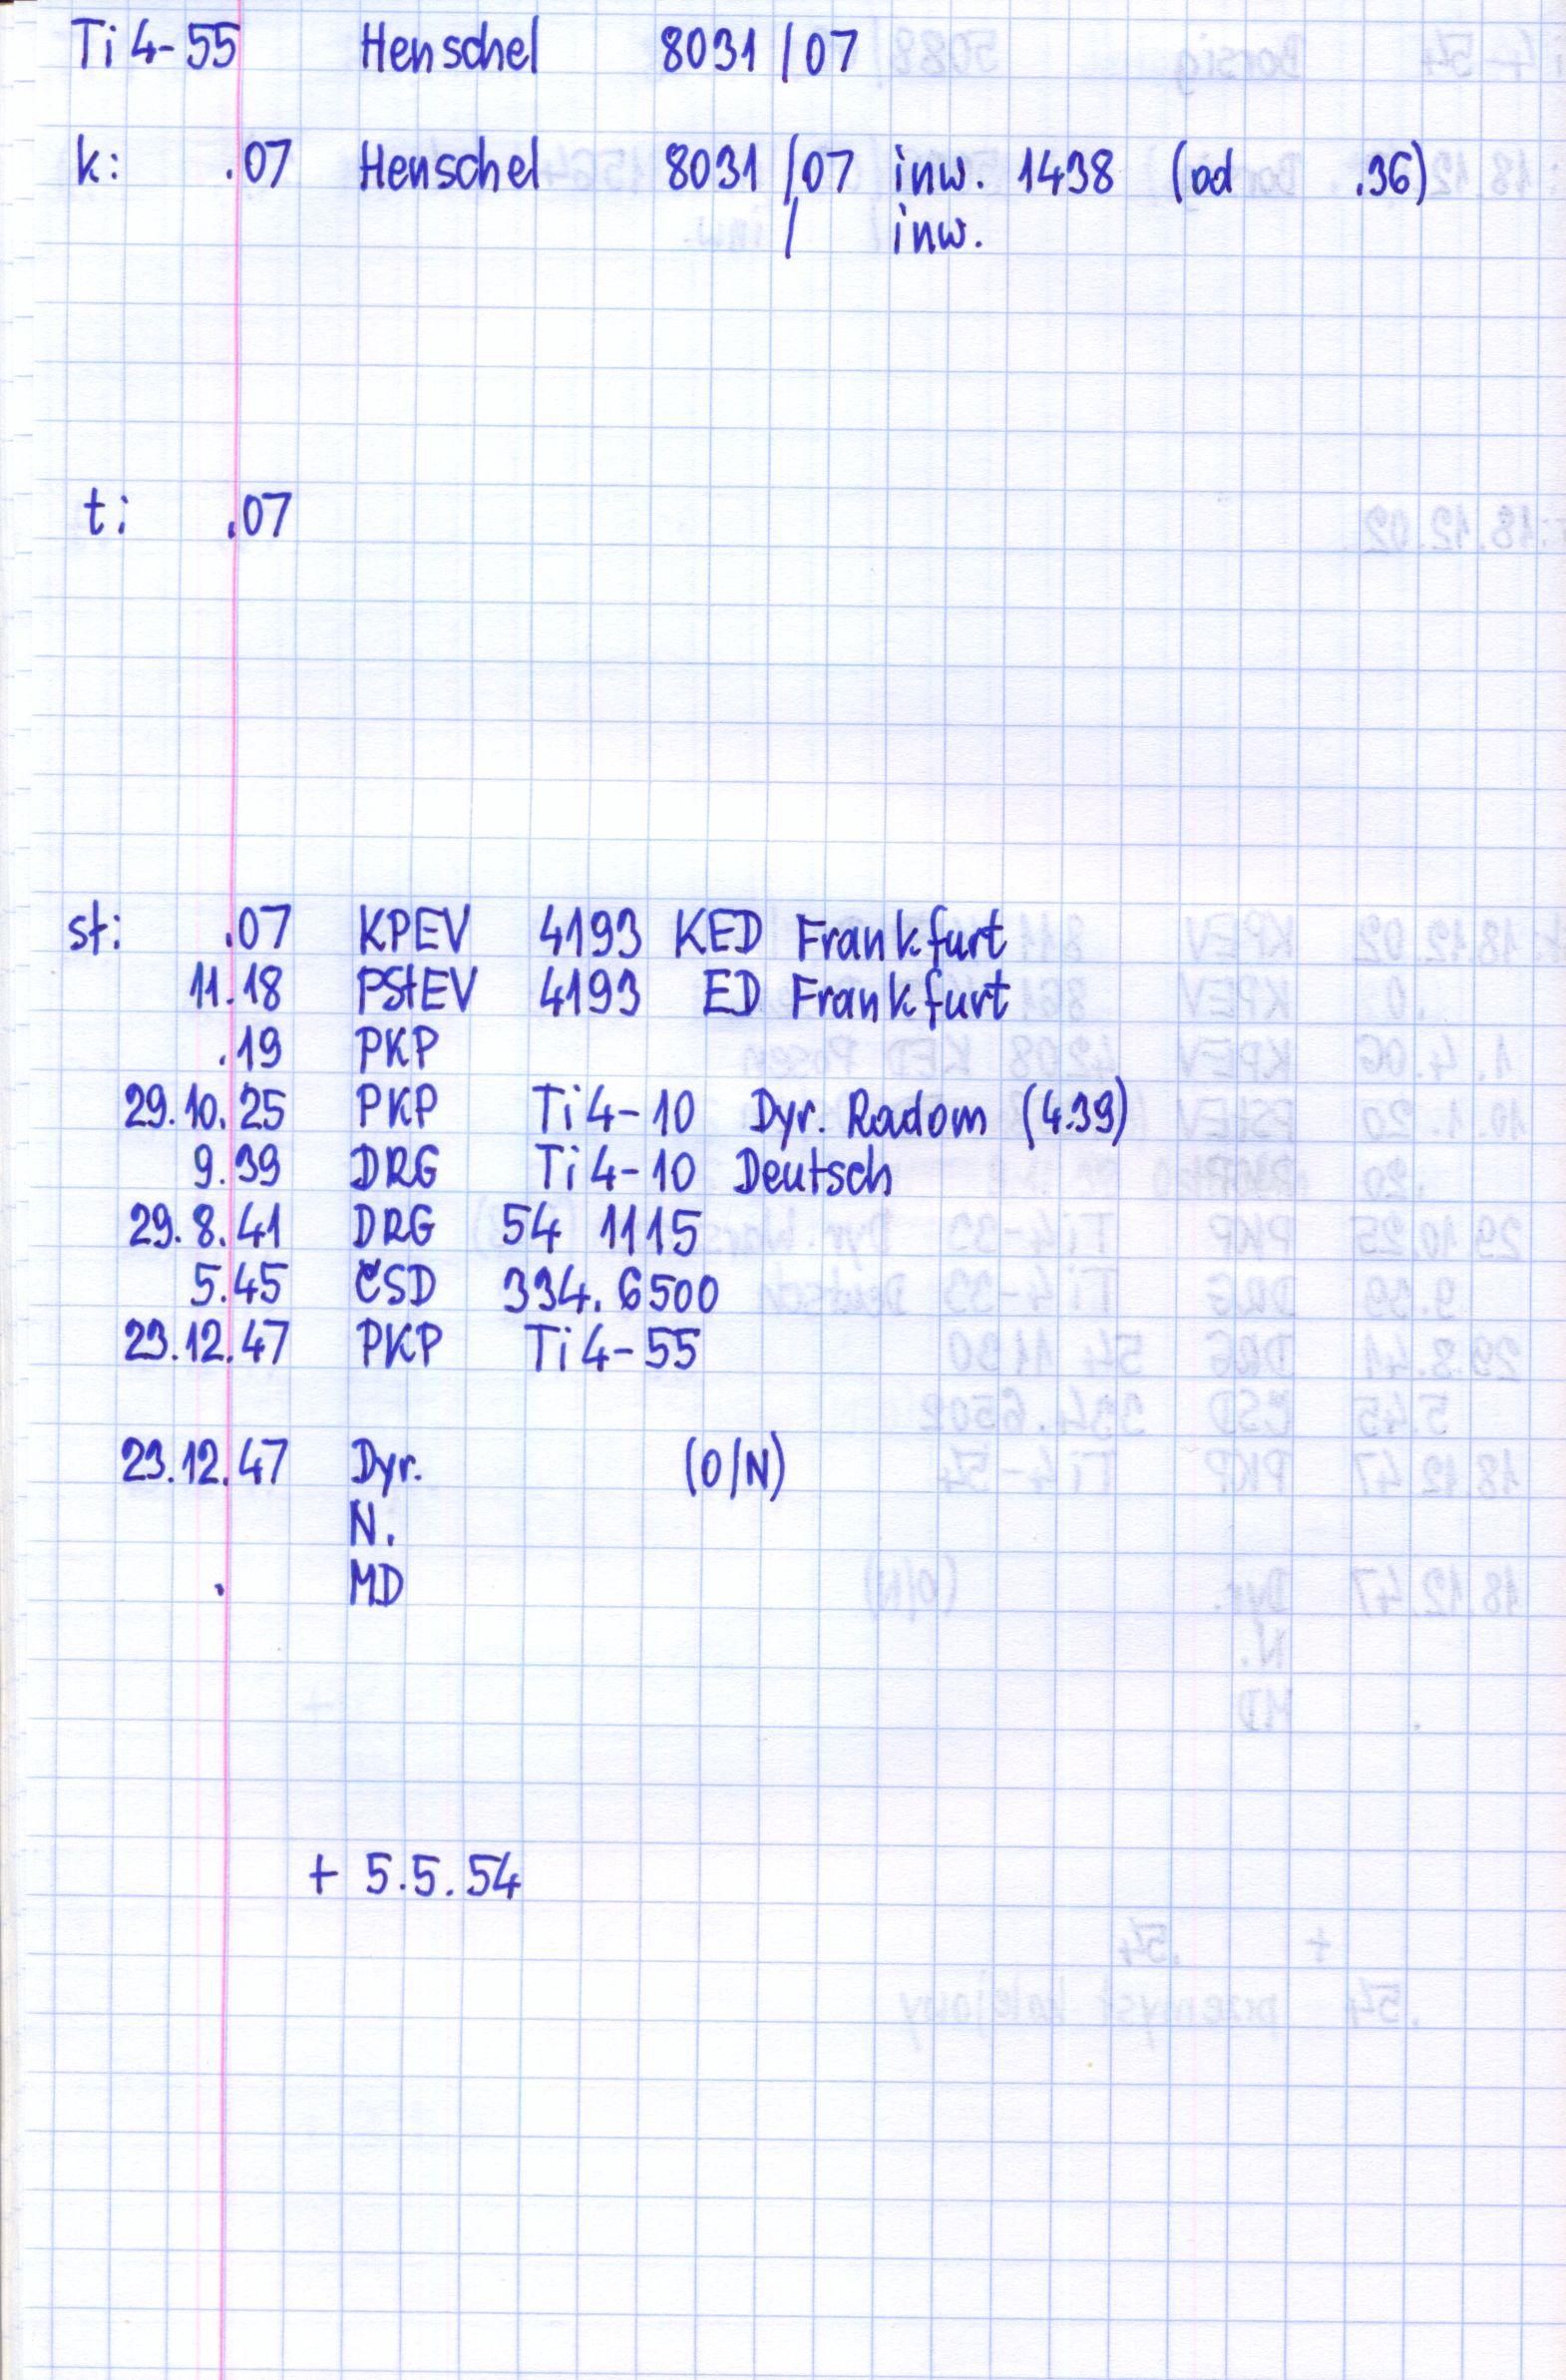 Ti4-55 Henschel 8031/07
k: .07 Henschel 8031/07 inw. 1438 (od .36)
/ inw.
t: .07
st: .07 KPEV 4193 KED Frankfurt
11.18 PStEV 4193 ED Frankfurt
.19 PKP
29.10.25 PKP Ti4-10 Dyr. Radom (4.39)
9.39 DRG Ti4-10 Deutsch
29.8.41 DRG 54 1115
5.45 ČSD 334.6500
23.12.47 PKP Ti4-55
23.12.47 Dyr. (O/N)
N.
. MD
+ 5.5.54